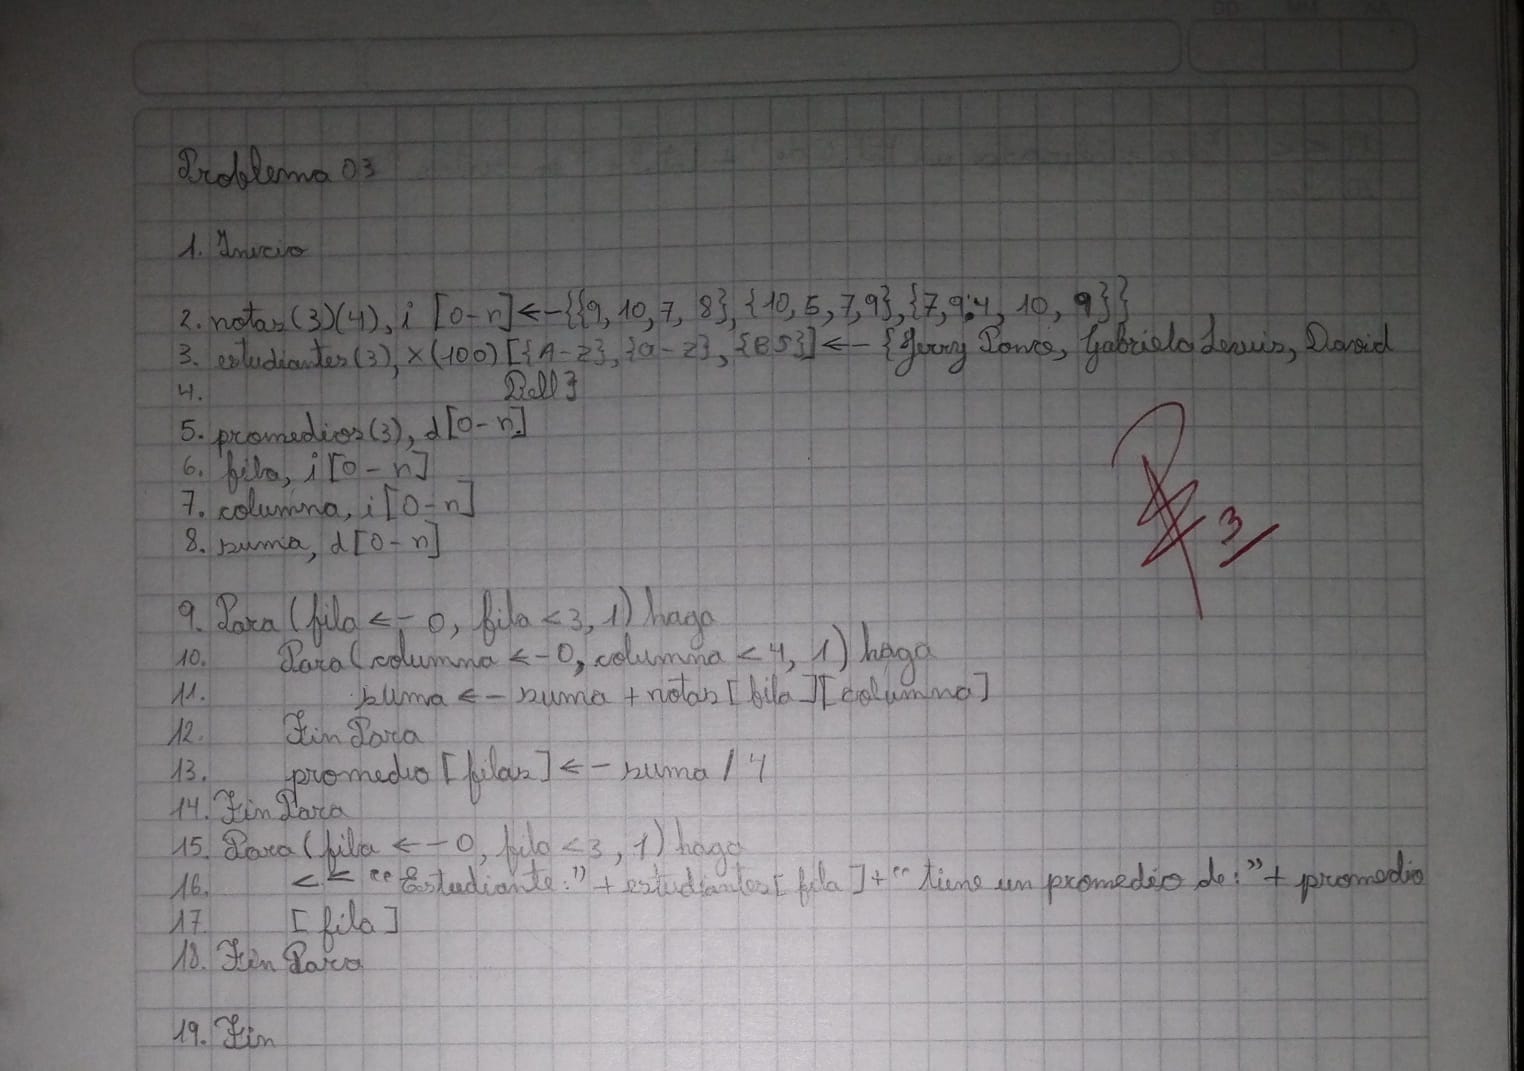 Problema 03
1. Inicio
2. notas(3)(4), i [0-n]<-{{9, 10, 7, 8}, {10, 5, 7, 9}, {7, 9,4, 10, 9}}
3. estudiantes(3), x(100)[{A-Z}, {a-z}, {ES}]<- {Jerry Ponce, Gabriela Lewis, David
4. Dell}
5. promedios(3), d[0-n]
6. fila, i[0-n]
7. columna, i[0-n]
8. suma, d[0-n]
3/
9. Para (fila <- 0, fila < 3, 1) haga
10. Para (columna <- 0, columna < 4, 1) haga
11. suma <- suma + notas [fila][columna]
12. Fin Para
13. promedio [filas] <- suma / 4
14. Fin Para
15. Para (fila <- 0, fila < 3, 1) haga
16. << "Estudiante:" + estudiantes[fila]+" tiene un promedio de:"+ promedio
17. [fila]
18. Fin Para
19. Fin